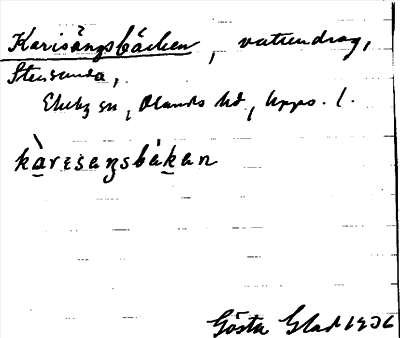 Karisängsbäcken, vattendrag,
Stensunda,
Ekeby sn, Olands hd, Upps. l.
kàresaŋsbàkan
Gösta Glad 1936